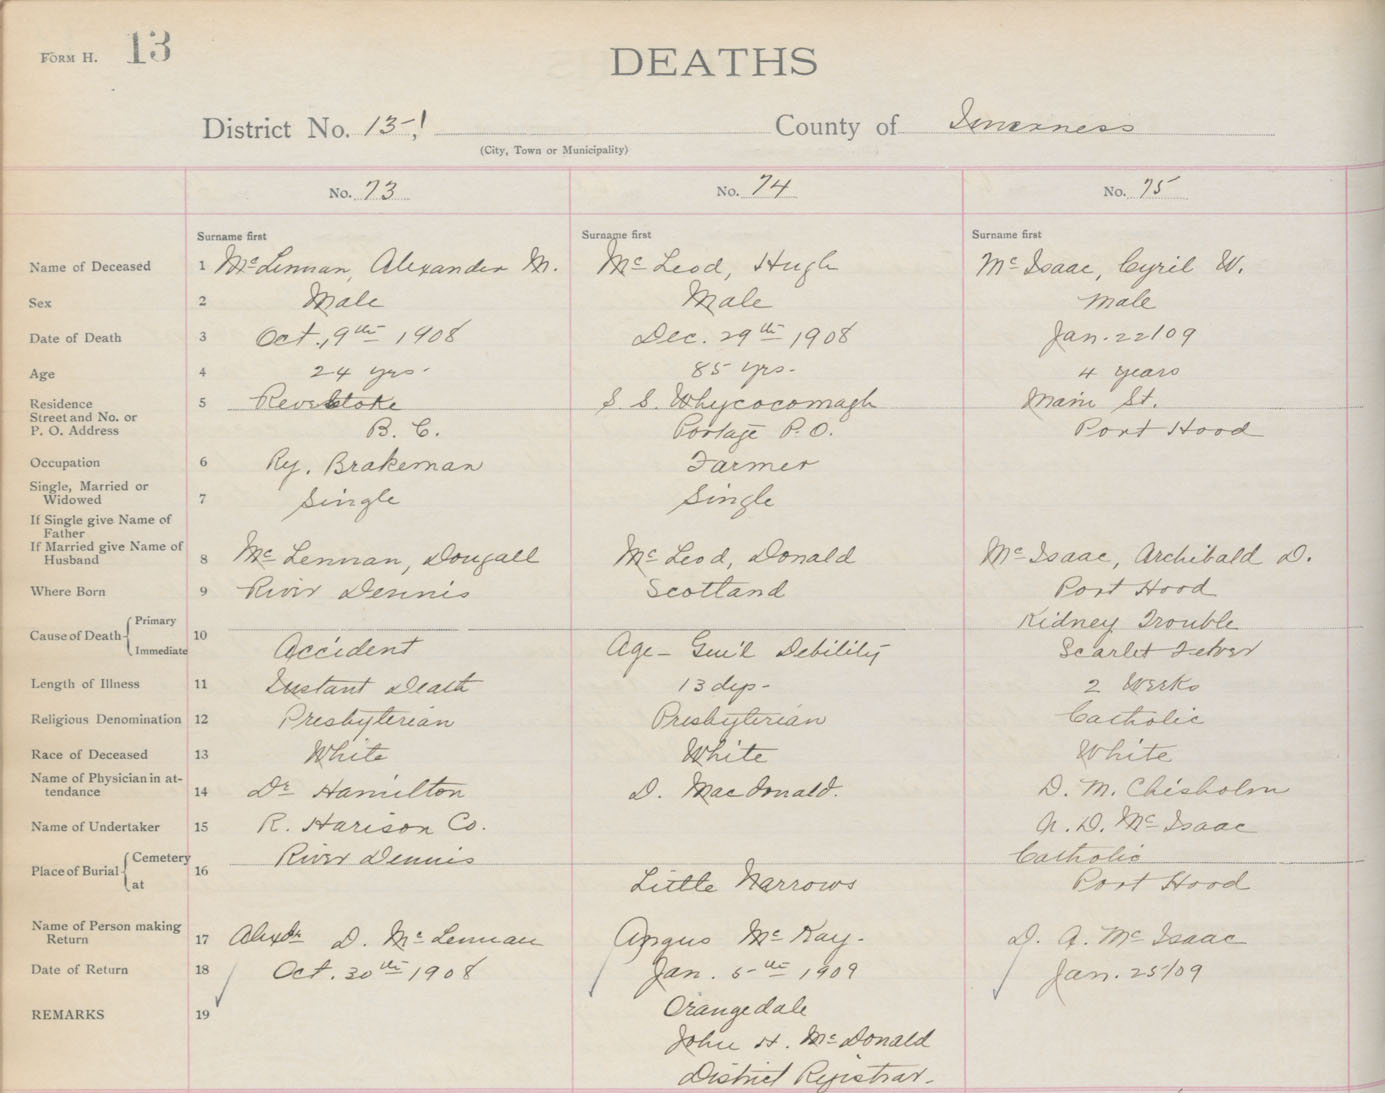 FORM H. 13
DEATHS
District No. 13-1 County of Inverness
(City, Town or Municipality)
No. 73 No. 74 No. 75
Surname first Surname first Surname first
Name of Deceased 1 McLennan, Alexander M. McLeod, Hugh McIsaac, Cyril W.
Sex 2 Male Male Male
Date of Death 3 Oct. 9th 1908 Dec. 29th 1908 Jan. 22/09
Age 4 24 yrs. 85 yrs. 4 years
Residence 5 Revelstoke S. S. Whycocomagh Main St.
Street and No. or
P. O. Address B. C. Portage P.O. Port Hood
Occupation 6 Ry. Brakeman Farmer
Single, Married or
Widowed 7 Single Single
If Single give Name of
Father
If Married give Name of
Husband 8 McLennan, Dougall McLeod, Donald McIsaac, Archibald D.
Where Born 9 River Dennis Scotland Port Hood
Cause of Death Primary 10 Kidney Trouble
Immediate Accident Age - Gen'l Debility Scarlet Fever
Length of Illness 11 Instant Death 13 dys- 2 Weeks
Religious Denomination 12 Presbyterian Presbyterian Catholic
Race of Deceased 13 White White White
Name of Physician in at-
tendance 14 Dr Hamilton D. MacDonald. D. M. Chisholm
Name of Undertaker 15 R. Harison Co. A. D. McIsaac
Place of Burial Cemetery 16 River Dennis Catholic
at Little Narrows Port Hood
Name of Person making
Return 17 Alexdr D. McLennan Angus McKay. D. A. McIsaac
Date of Return 18 Oct. 30th 1908 Jan. 5th 1909 Jan. 25/09
REMARKS 19 Orangedale
John H. McDonald
District Registrar.